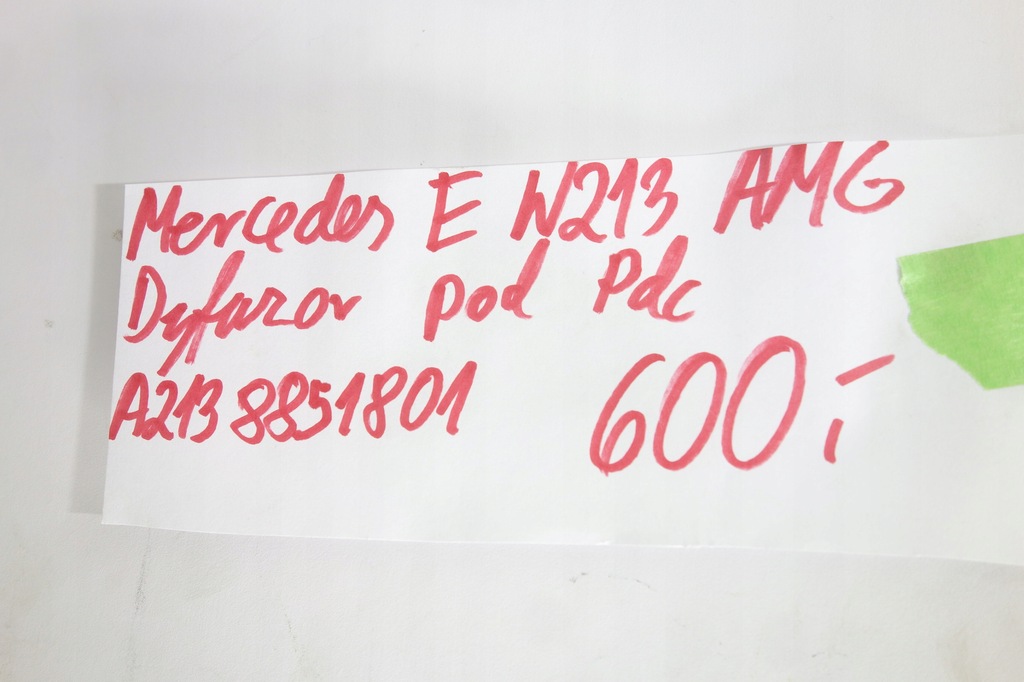 Mercedes E W213 AMG
Dyfuzor pod Pdc
A213 8851801 600,-